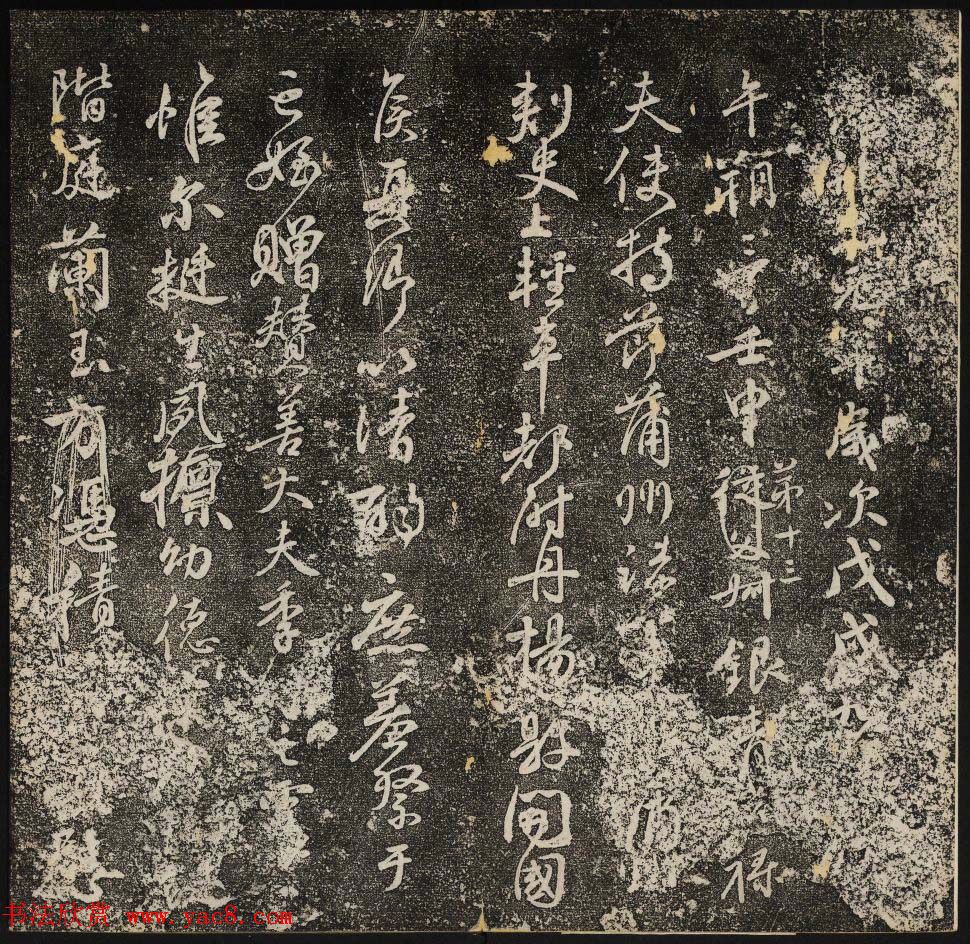 元年歲次戊戌九
午朔三日壬申從父州銀青祿
第十三
夫使持節蒲州諸軍蒲
刺史上輕車都尉丹楊縣開國
侯真卿以清酌庶羞祭于
亡姪贈贊善大夫季之靈
惟爾挺生夙標幼德
階庭蘭玉方憑積慰
书法欣赏 www.yac8.com